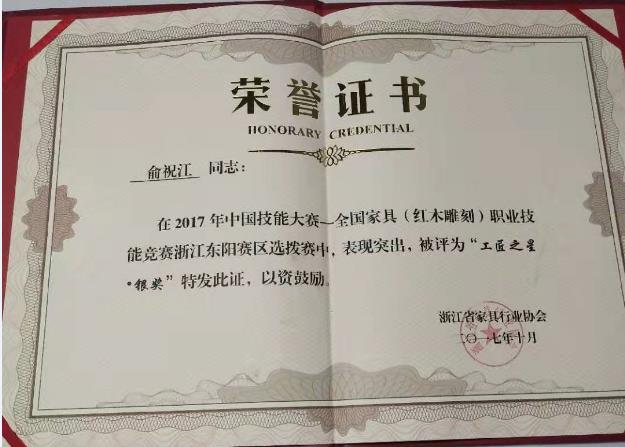 荣誉证书
HONORARY CREDENTIAL
俞祝江 同志：
在2017年中国技能大赛—全国家具（红木雕刻）职业技
能竞赛浙江东阳赛区选拨赛中，表现突出，被评为“工匠之星
·银奖”特发此证，以资鼓励。
浙江省家具行业协会
二〇一七年十月